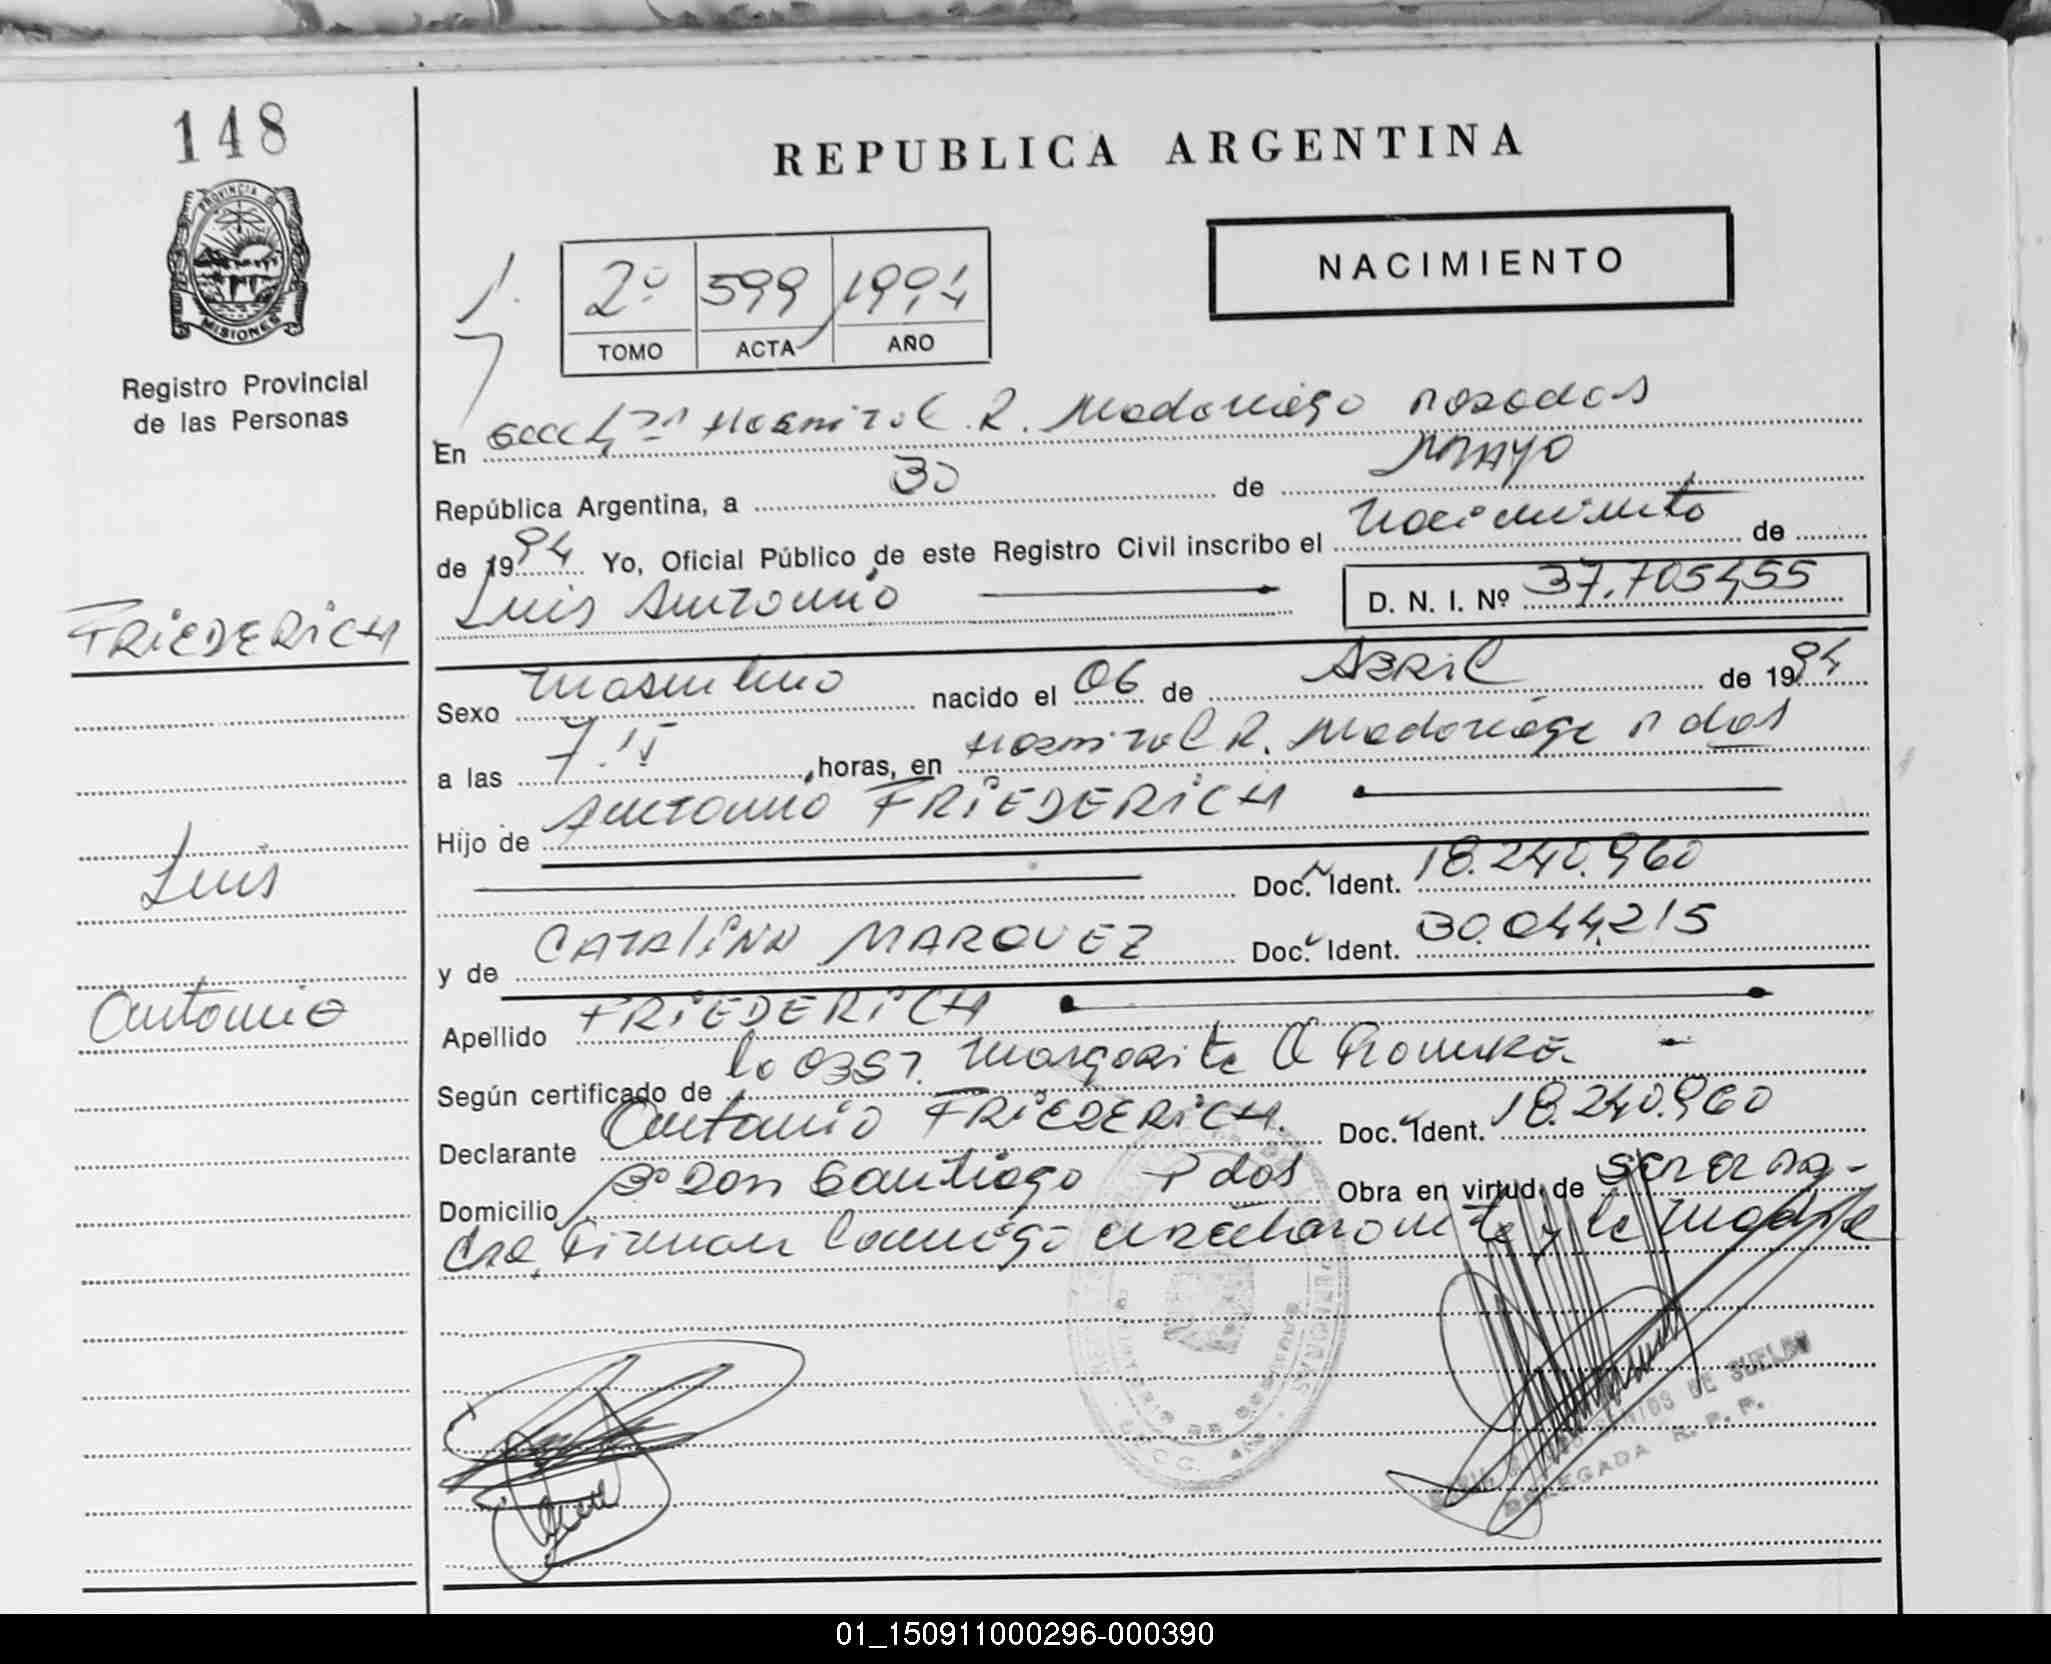 148
REPUBLICA ARGENTINA
PROVINCIA DE
MISIONES
Registro Provincial
de las Personas
2º 599 1994
TOMO ACTA AÑO
NACIMIENTO
En Secc 4ta Hospital R. Madariaga Posadas
República Argentina, a 30 de MAYO
de 1994 Yo, Oficial Público de este Registro Civil inscribo el Nacimiento de
Luis Antonio D. N. I. Nº 37.705455
FRiEDERiCH
Luis
Antonio
Sexo Masculino nacido el 06 de ABRiL de 1994
a las 7.15 horas, en Hospital R. Madariaga Pdas
Hijo de Antonio FRiEDERiCH
Doc. Ident. 18.240.960
y de CATALiNA MARQUEZ Doc. Ident. 30.044.215
Apellido FRiEDERiCH
Según certificado de la OBST. Margarita
Declarante Antonio FRiEDERiCH. Doc. Ident. 18.240.960
Domicilio Bº Don Santiago Pdas Obra en virtud de ser el pa-
dre, Firman Conmigo el declarante y la Madre
DE SUELDO
DELEGADA R. P. P.
01_150911000296-000390